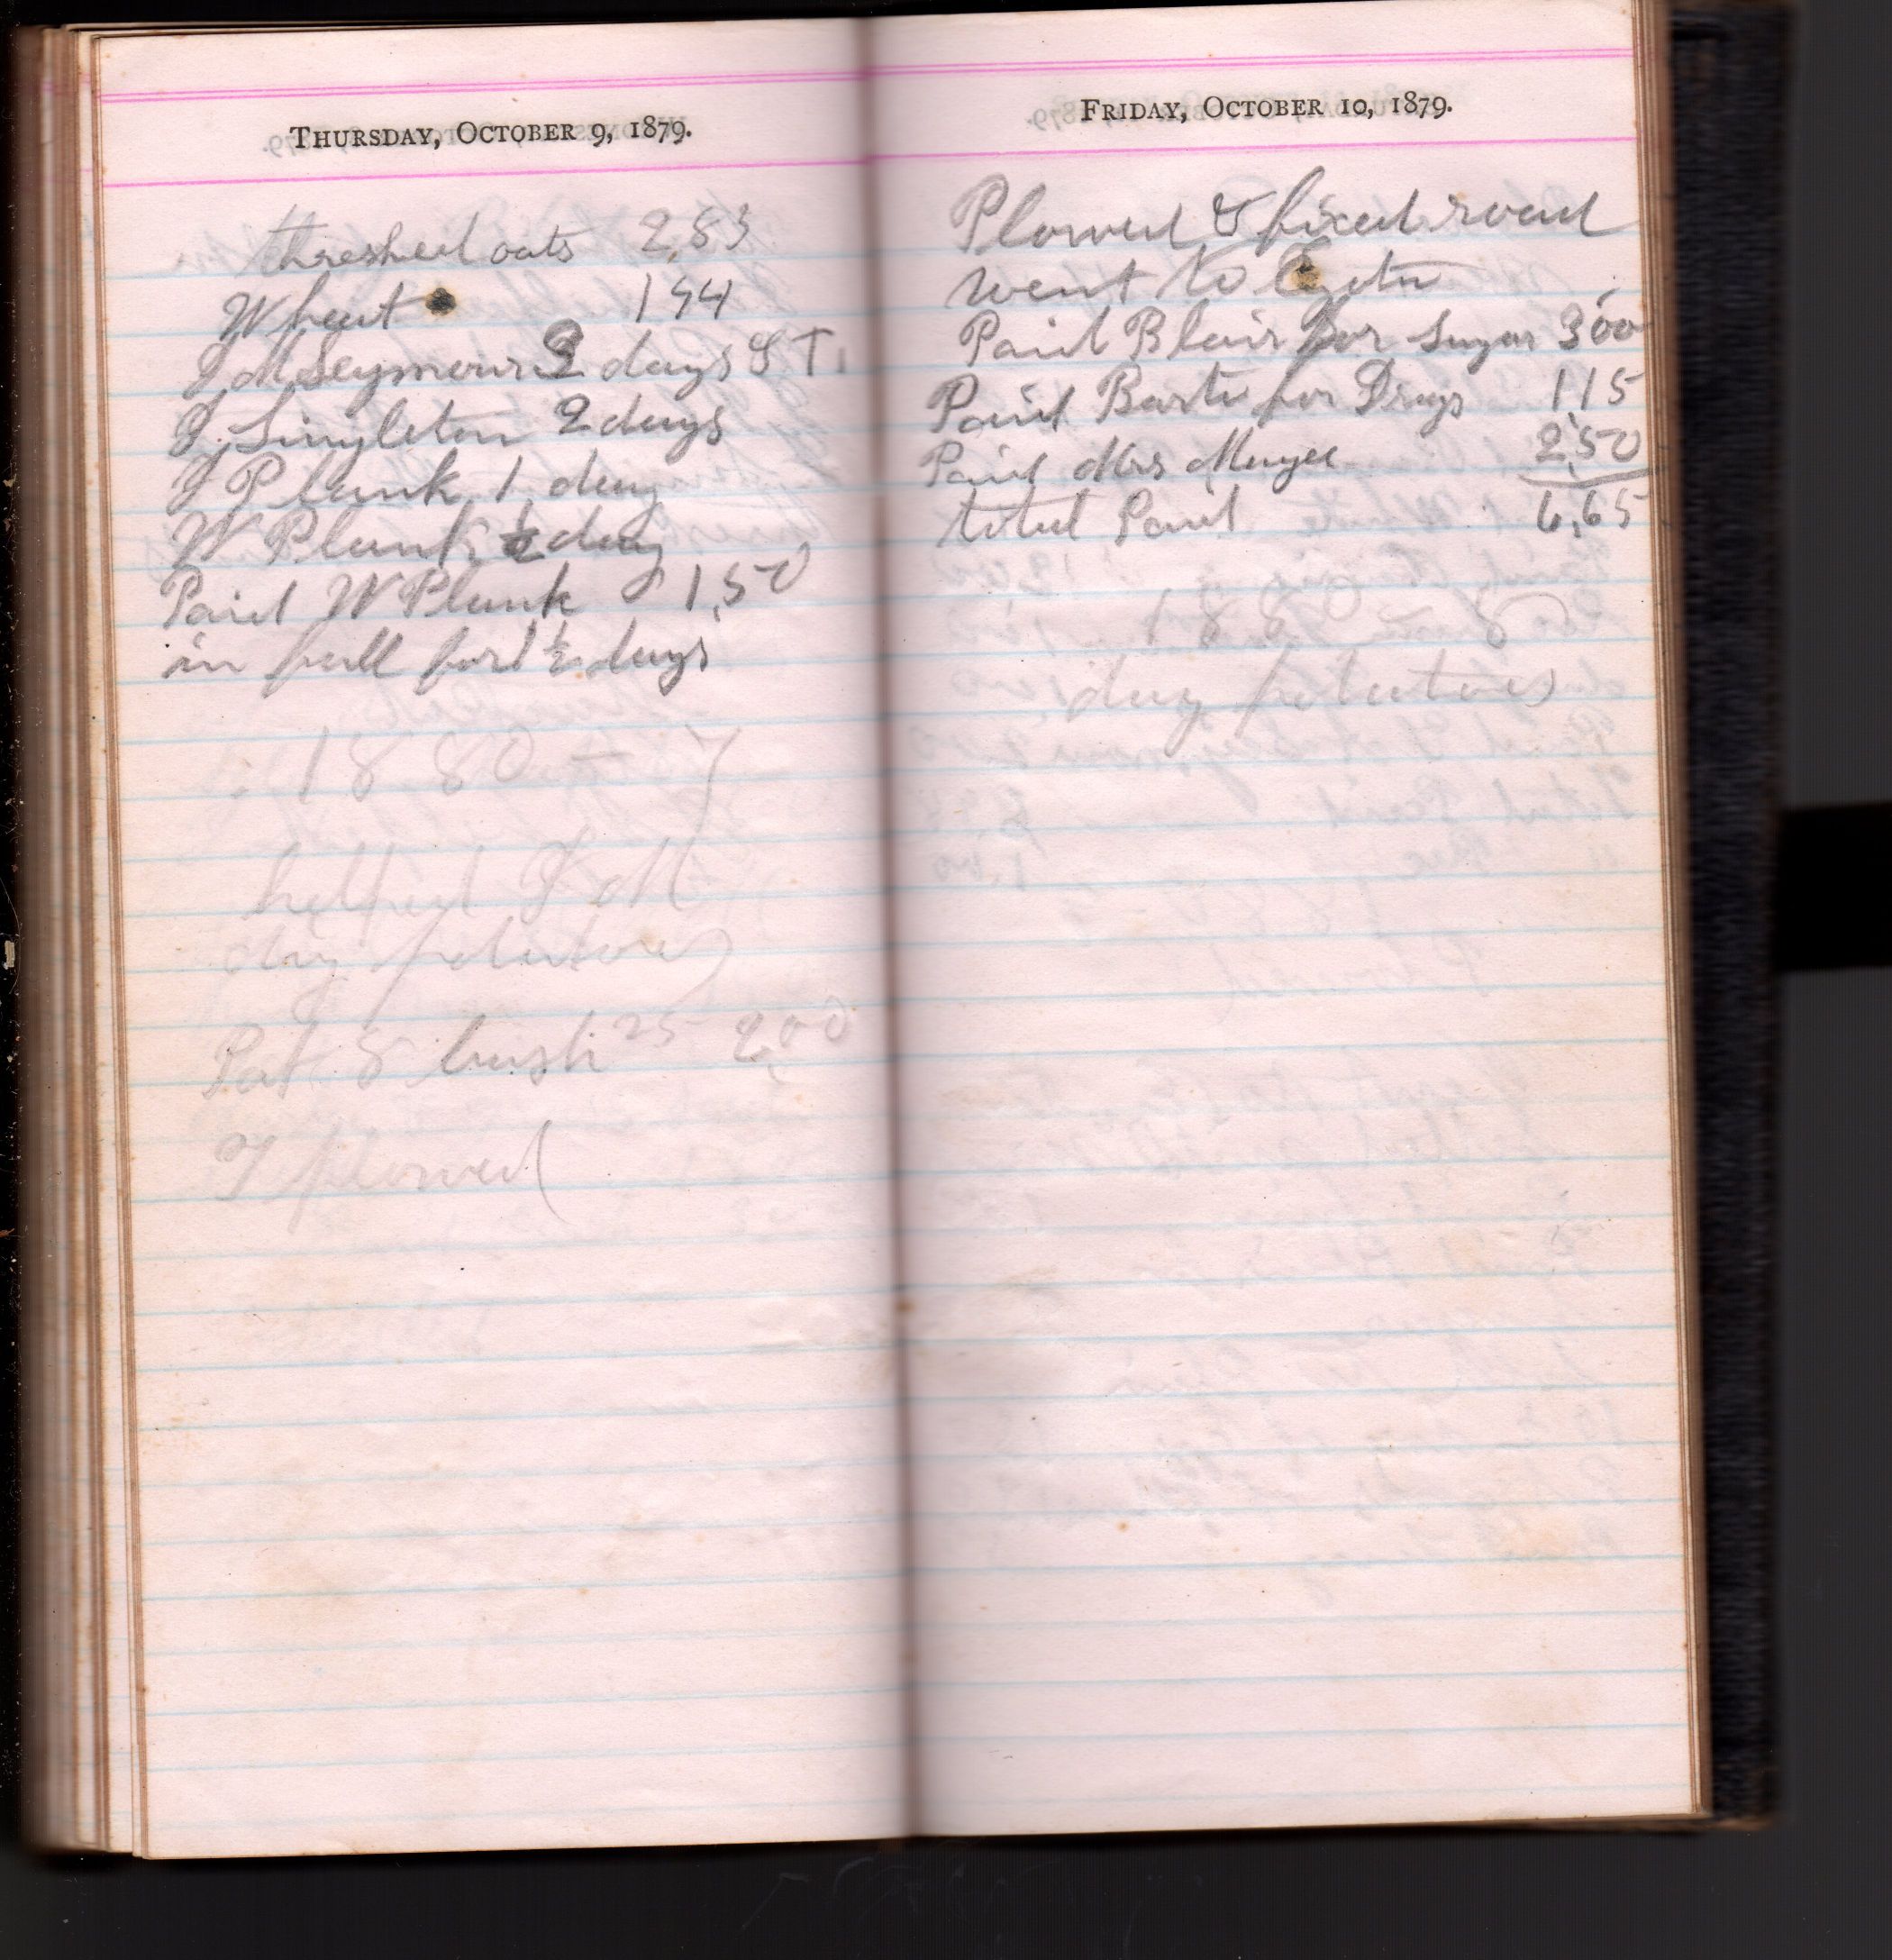 THURSDAY, OCTOBER 9, 1879.
threshed oats 283
Wheat 144
J M Seymour 2 days S T.
J. Singleton 2 days
J Plank 1 day
W Plank ½ day
Paid W Plank 1,50
in full for 1 ½ days
1880 7
helped J M
dig potatoes
Pot 8 bush 25 2,00
plowed
FRIDAY, OCTOBER 10, 1879.
Plowed & fixed road
went to
Paid Blair for Sugar 3 00
Paid for Drugs 1,15
Paid Mrs 2,50
total Paid 6,65
1880 8
dug potatoes